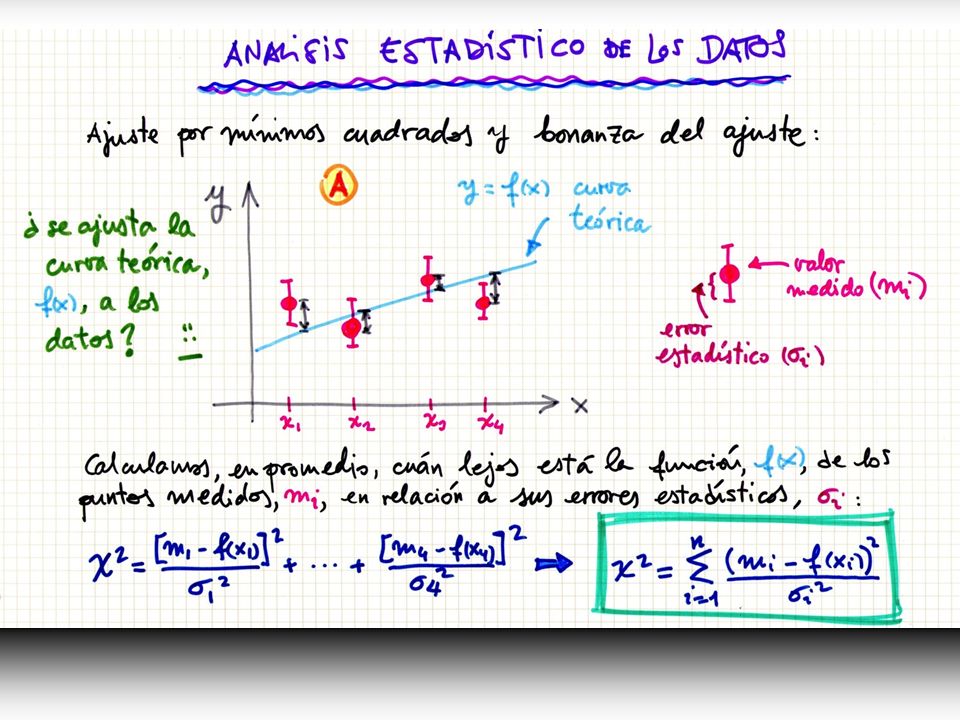 ANALISIS ESTADÍSTICO DE LOS DATOS
Ajuste por mínimos cuadrados y bonanza del ajuste:
A
y = f(x) curva
teórica
y
¿se ajusta la
curva teórica,
f(x), a los
datos?
valor
medido (mi)
error
estadístico (σi)
x
x1 x2 x3 x4
Calculamos, en promedio, cuán lejos está la función, f(x), de los
puntos medidos, mi, en relación a sus errores estadísticos, σi:
χ² = [m1 - f(x1)]²/σ1² + ... + [m4 - f(x4)]²/σ4² ⇒ χ² = Σ_{i=1}^{n} (mi - f(xi))²/σi²